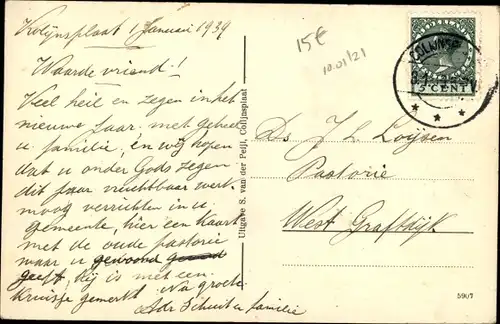 Kolijnsplaat 1 Januari 1939
Waarde vriend!
Veel heil en zegen in het
nieuwe jaar met geheel
u familie, en wij hopen
dat u onder Gods zegen
dit jaar vruchtbaar werk
moog verrichten in u
gemeente, hier een kaart
met de oude pastorie
waar u gewoond
geeft, hij is met een
kruisje gemerkt. Nu groete
Adr Schuit en familie
Uitgave S. van der Peijl, Colijnsplaat
15€
10.01/21
5 CENT
Ds. J L Looijsen
Pastorie
West Graftdijk
5907